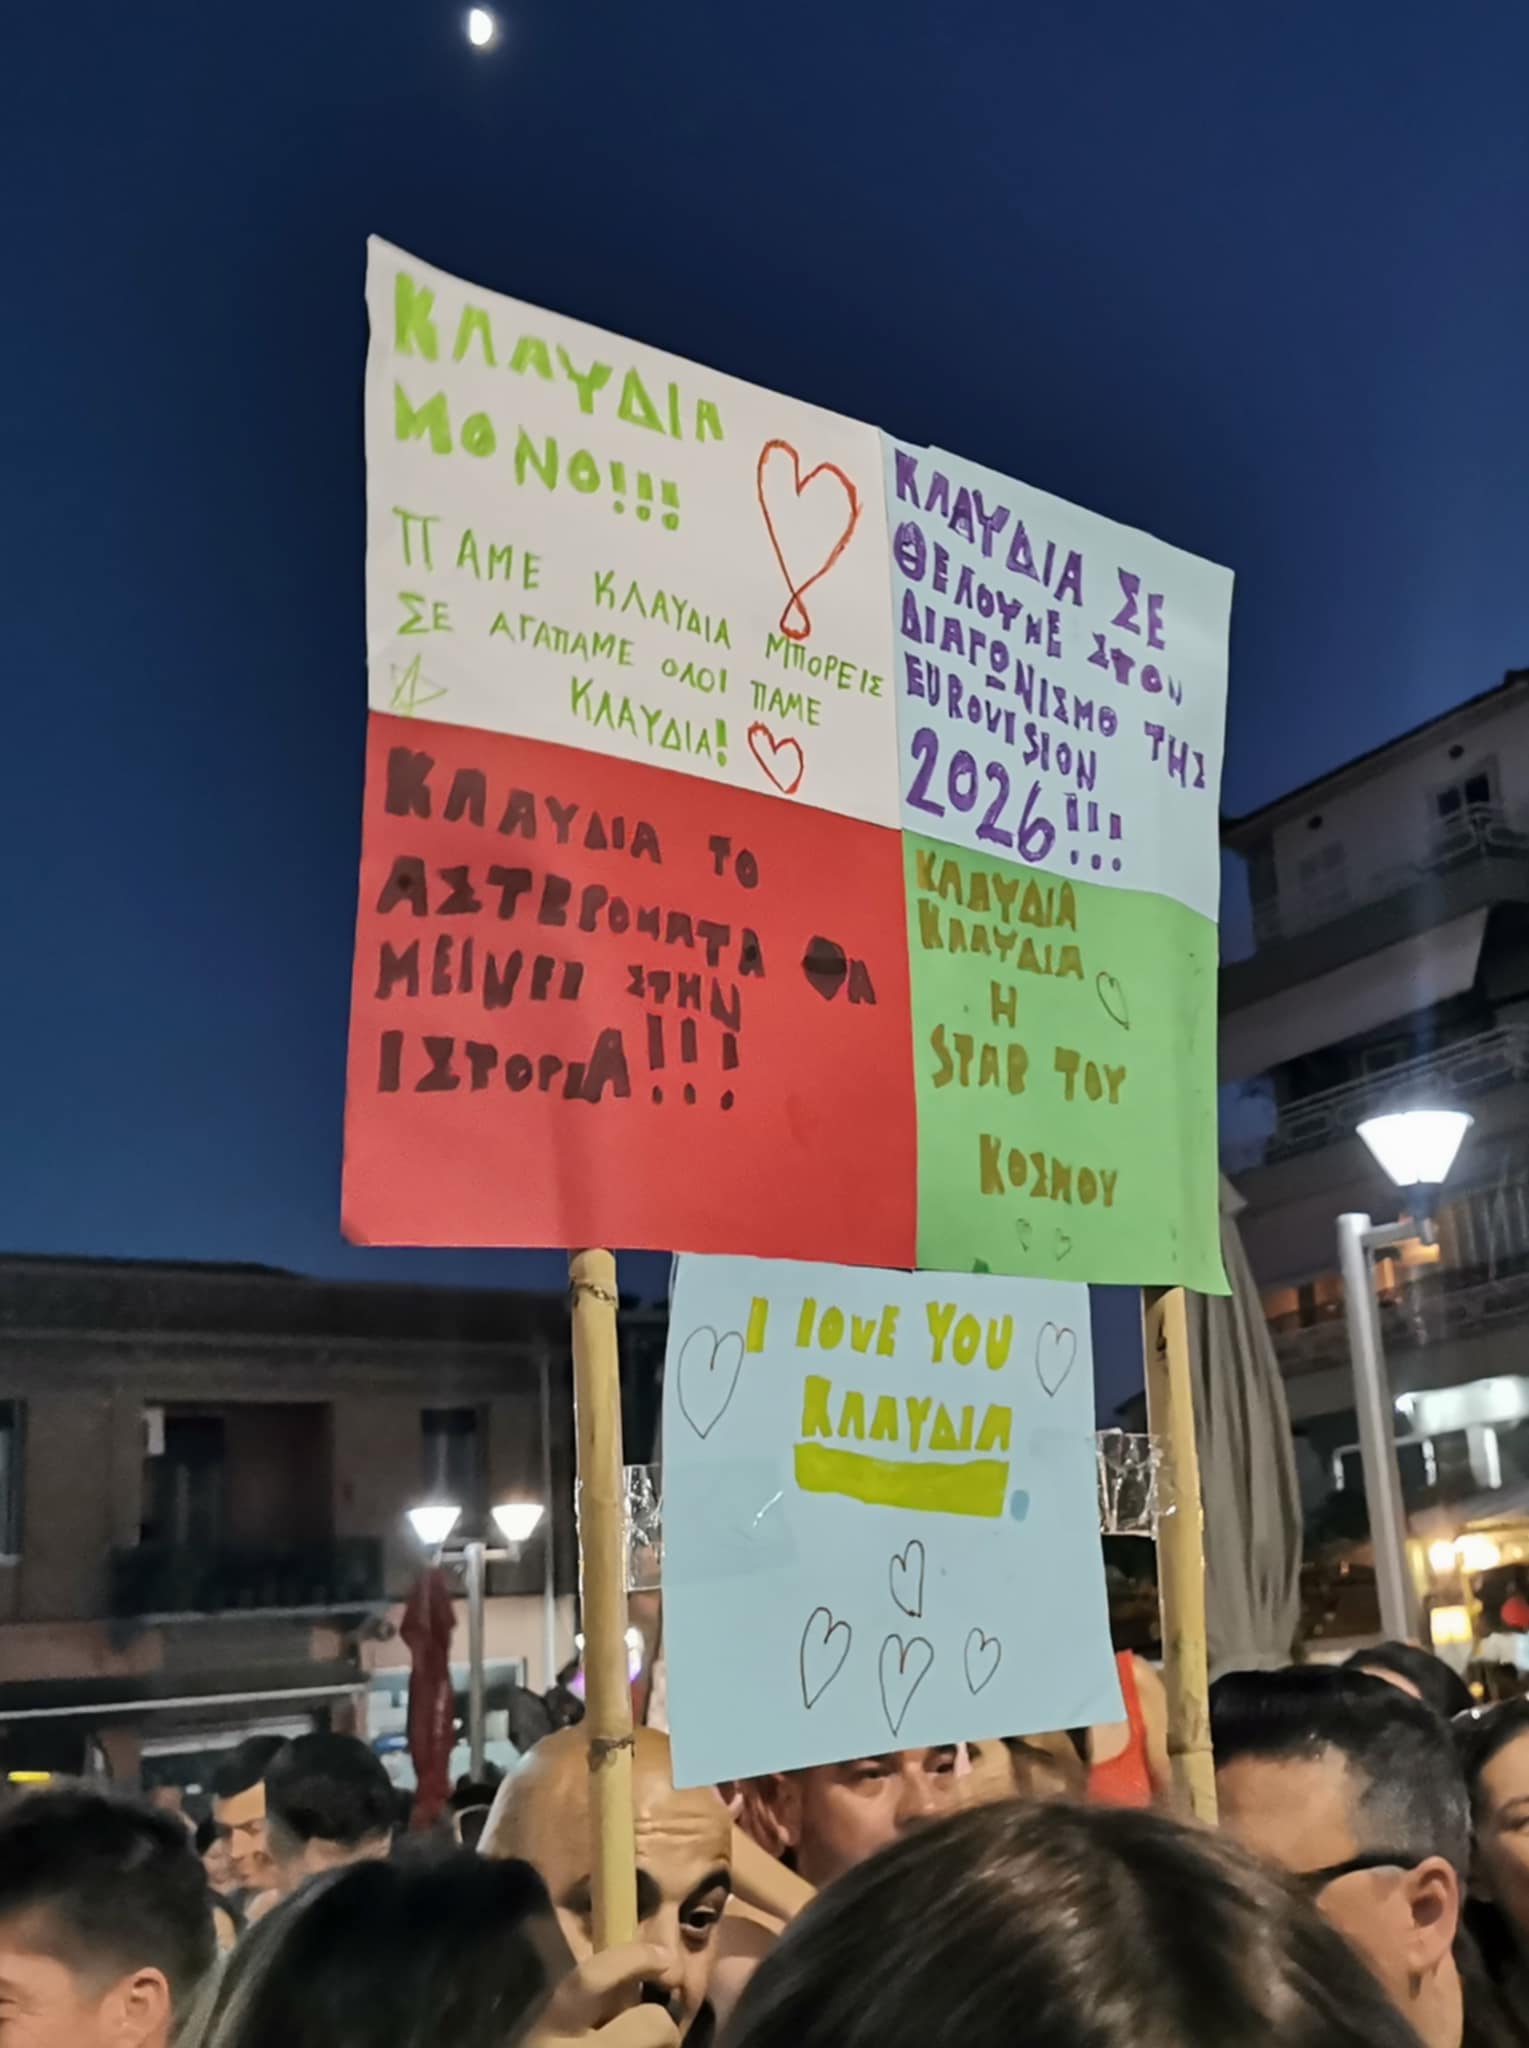 ΚΛΑΥΔΙΑ
ΜΟΝΟ!!!
ΠΑΜΕ ΚΛΑΥΔΙΑ ΜΠΟΡΕΙΣ
ΣΕ ΑΓΑΠΑΜΕ ΟΛΟΙ ΠΑΜΕ
ΚΛΑΥΔΙΑ!
ΚΛΑΥΔΙΑ ΣΕ
ΘΕΛΟΥΜΕ ΣΤΟΝ
ΔΙΑΓΩΝΙΣΜΟ ΤΗΣ
EUROVISION
2026!!!
ΚΛΑΥΔΙΑ ΤΟ
ΑΣΤΕΡΟΜΑΤΑ ΘΑ
ΜΕΙΝΕΙ ΣΤΗΝ
ΙΣΤΟΡΙΑ!!!
ΚΛΑΥΔΙΑ
ΚΛΑΥΔΙΑ
Η
STAR ΤΟΥ
ΚΟΣΜΟΥ
I LOVE YOU
ΚΛΑΥΔΙΑ